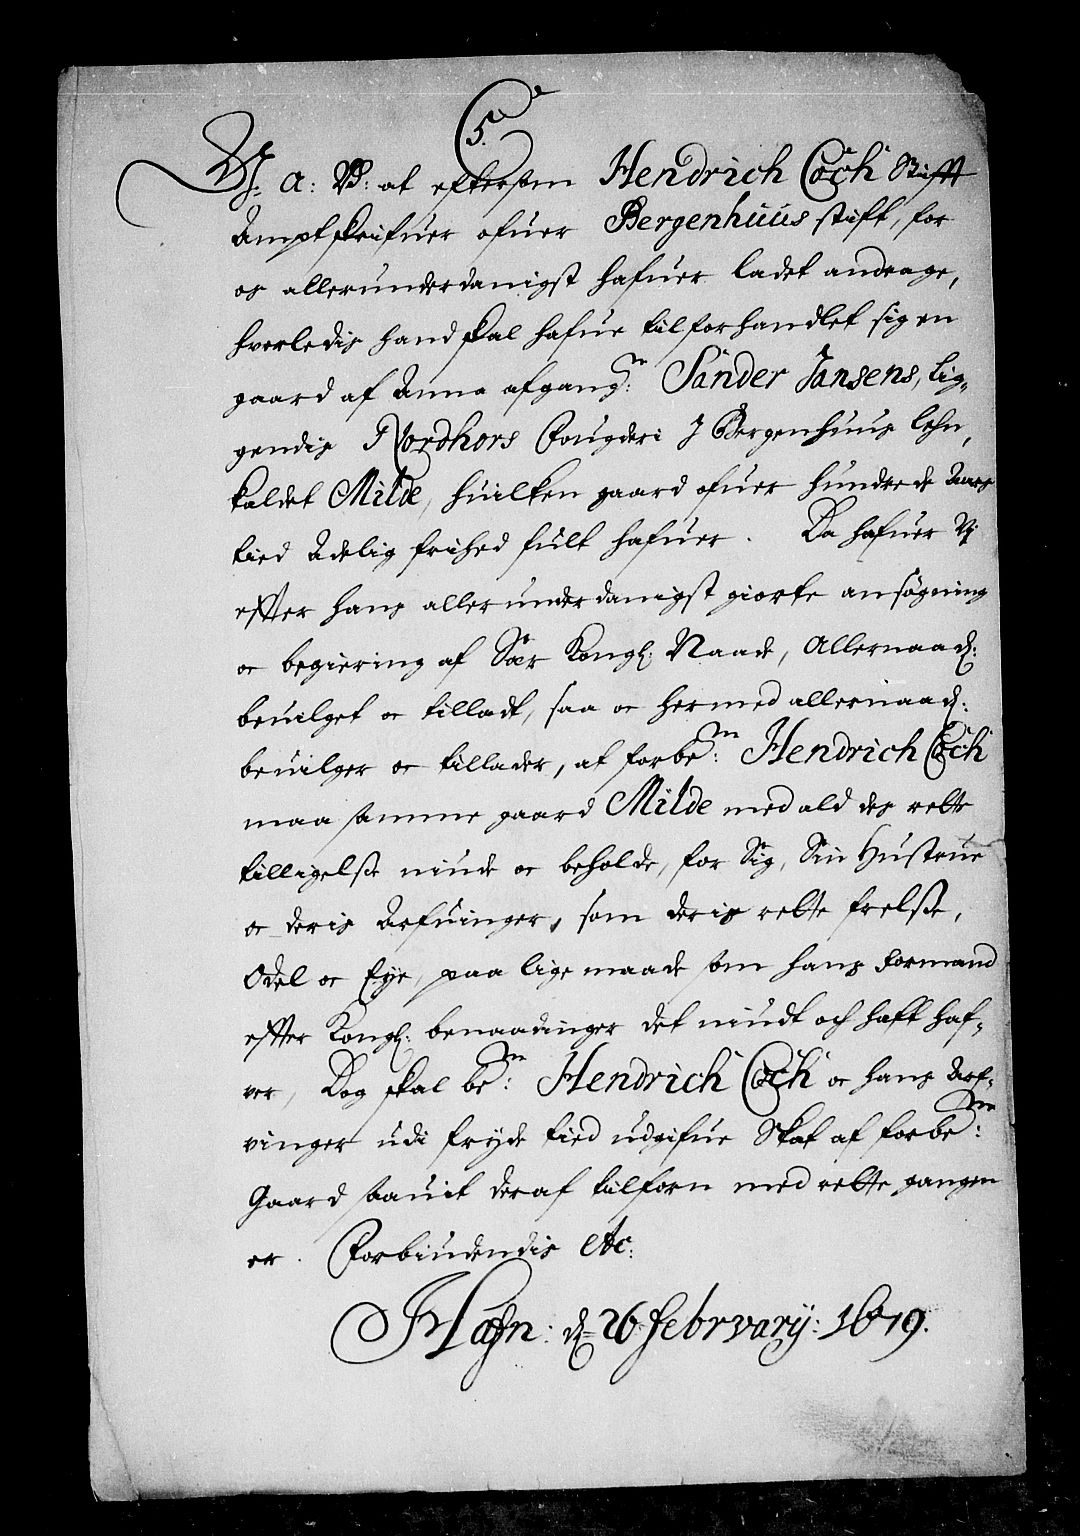 5.
V. G: V: at eftersom Hendrich Coch Stifft
Amptskrifuer ofuer Bergenhuus stift, for
os allerunderdanigst hafuer ladet andrage,
hvorledis hand skal hafue tilforhandlet sig en
gaard af Anna afgangn: Sander Jansens, lig-
gendis Nordhors Fougderi J Bergenhuus lehn,
kaldet Milde, huilken gaard ofuer hunderde Aars
tied Adelig frihed fult hafuer. Da hafuer Vj
effter hans allerunderdanigst giorte ansøgning
oc begiering af Sær Kongl: Naade, Allernaad:
beuilget oc tilladt, saa oc hermed allernaad:
beuilger oc tillader, at forbem: Hendrich Coch
maa samme gaard Milde med ald des rette
tilligelse niude oc beholde, for Sig, Sin Hustrue
oc deris Arfuinger, som deris rette frelse,
Odel oc Eye, paa lige maade som hans formand
effter Kongl: benaadinger det niudt och haft haf-
ver, Dog skal bem: Hendrich Coch oc hans Arf-
vinger udi fryde tied udgifue Skat af forbem:
Gaard saauit deraf tilforn med rette gangen
er. Forbiudendis etc:
Hafn: d= 26 februarij: 1679.